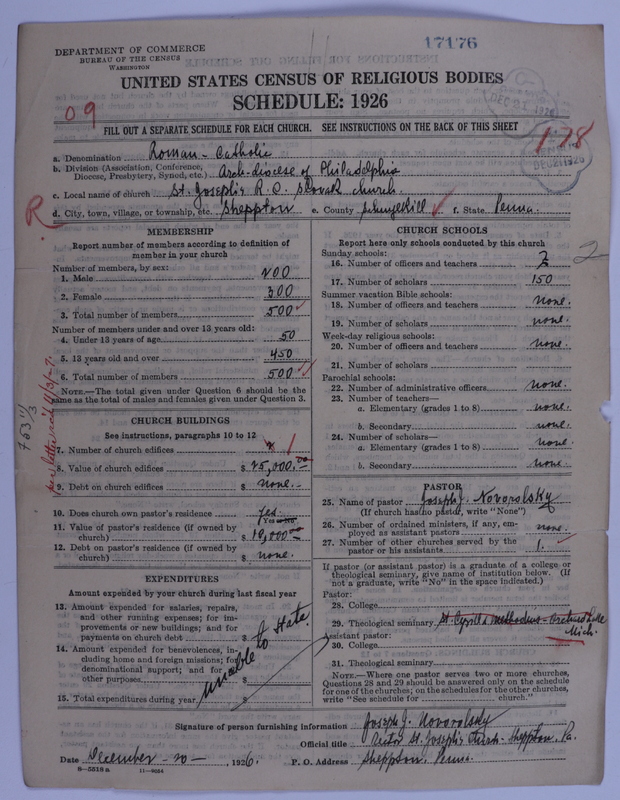 17176
DEPARTMENT OF COMMERCE
BUREAU OF THE CENSUS
WASHINGTON
UNITED STATES CENSUS OF RELIGIOUS BODIES
SCHEDULE: 1926
09
DEC 21 1926
178
FILL OUT A SEPARATE SCHEDULE FOR EACH CHURCH. SEE INSTRUCTIONS ON THE BACK OF THIS SHEET
DEC 21 1926
a. Denomination Roman - Catholic
b. Division (Association, Conference, Diocese, Presbytery, Synod, etc.) Arch-diocese of Philadelphia
c. Local name of church St. Joseph's R. C. Slovak church.
R
d. City, town, village, or township, etc. Sheppton e. County Schuylkill f. State Penna.
MEMBERSHIP
Report number of members according to definition of
member in your church
Number of members, by sex:
1. Male 200
2. Female 300
3. Total number of members 500
Number of members under and over 13 years old:
4. Under 13 years of age 50
5. 13 years old and over 450
6. Total number of members 500
NOTE.—The total given under Question 6 should be the
same as the total of males and females given under Question 3.
CHURCH BUILDINGS
See instructions, paragraphs 10 to 12
7. Number of church edifices 1
8. Value of church edifices $ 25,000.00
9. Debt on church edifices $ none.-
10. Does church own pastor's residence? Yes.
Yes or No
11. Value of pastor's residence (if owned by
church) $ 10,000.00
12. Debt on pastor's residence (if owned by
church) $ none.
EXPENDITURES
Amount expended by your church during last fiscal year
13. Amount expended for salaries, repairs,
and other running expenses; for im-
provements or new buildings; and for
payments on church debt $
14. Amount expended for benevolences, in-
cluding home and foreign missions; for
denominational support; and for all
other purposes $
15. Total expenditures during year $
unable to state.
CHURCH SCHOOLS
Report here only schools conducted by this church
Sunday schools:
16. Number of officers and teachers 2
2
17. Number of scholars 150
Summer vacation Bible schools:
18. Number of officers and teachers none.
19. Number of scholars none.
Week-day religious schools:
20. Number of officers and teachers none.
21. Number of scholars
Parochial schools:
22. Number of administrative officers none.
23. Number of teachers—
a. Elementary (grades 1 to 8) none.
b. Secondary none.
24. Number of scholars—
a. Elementary (grades 1 to 8) none.
b. Secondary none.
PASTOR
25. Name of pastor Joseph J. Novorolsky
(If church has no pastor, write "None")
26. Number of ordained ministers, if any, em-
ployed as assistant pastors none.
27. Number of other churches served by the
pastor or his assistants 1.
If pastor (or assistant pastor) is a graduate of a college or
theological seminary, give name of institution below. (If
not a graduate, write "No" in the space indicated.)
Pastor:
28. College
29. Theological seminary St. Cyrill & Methodius - Orchard Lake
Mich.
Assistant pastor:
30. College
31. Theological seminary
NOTE.—Where one pastor serves two or more churches,
Questions 28 and 29 should be answered only on the schedule
for one of the churches; on the schedules for the other churches,
write "See schedule for church."
Signature of person furnishing information Joseph J. Novorolsky
Official title Rector St. Joseph's Church - Sheppton, Pa.
Date December - 20 -, 1926. P. O. Address Sheppton, Penna.
8—5518a 11—9064